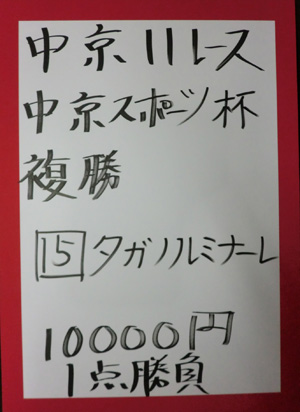 中京11レース
中京スポーツ杯
複勝
15 タガノルミナーレ
10000円
1点勝負